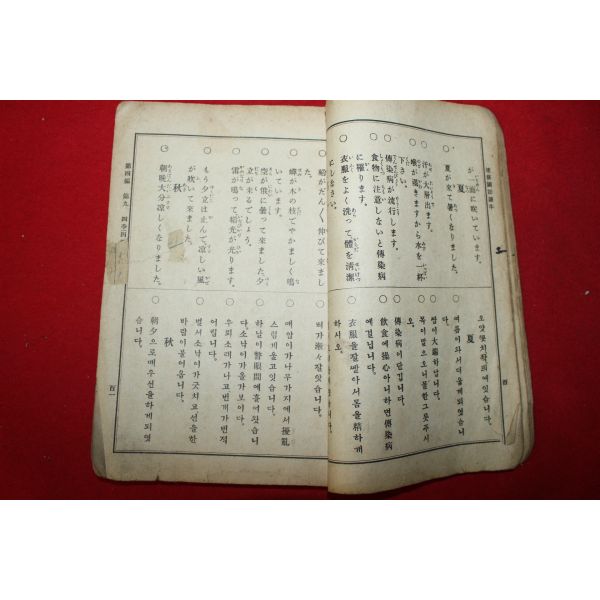 が一面に咲いています。
夏
夏が來て暑くなりました。
汗が大層出ます。
喉が渇きますから水を一杯
下さい。
傳染病が流行します。
食物に注意しないと傳染病
に罹ります。
衣服をよく洗つて體を清潔
にしなさい。
夏
여름이와서더웁게되엿슴니
다。
땀이大端히남니다。
목이말으오니물한그릇주시
오。
傳染病이단깁니다。
飮食에操心아니하면傳染病
에걸닙니다。
衣服을잘빨아서몸을精하게
하시오。
百
稻がだん〱伸びて來まし
た。
蟬が木の枝でやかましく鳴
いています。
空が俄に曇つて來ました夕
立が來るでしやう。
雷が鳴つて稻光が光ります。
もう夕立は止んで凉しい風
が吹いて來ました。
秋
朝晩大分凉しくなりました。
벼가漸々잘앗슴니다。
매암이가나무가지에서擾亂
스럽게울고잇슴니다。
하날이瞥眼間에흘여왓슴니
다소낙이가올가보이다。
우뢰소래가나고번개가번젹
어림니다。
벌서소낙이가긋치고션을한
바람이불어옴니다。
秋
朝夕으로매우션을하게되엿
슴니다。
第四編
百一